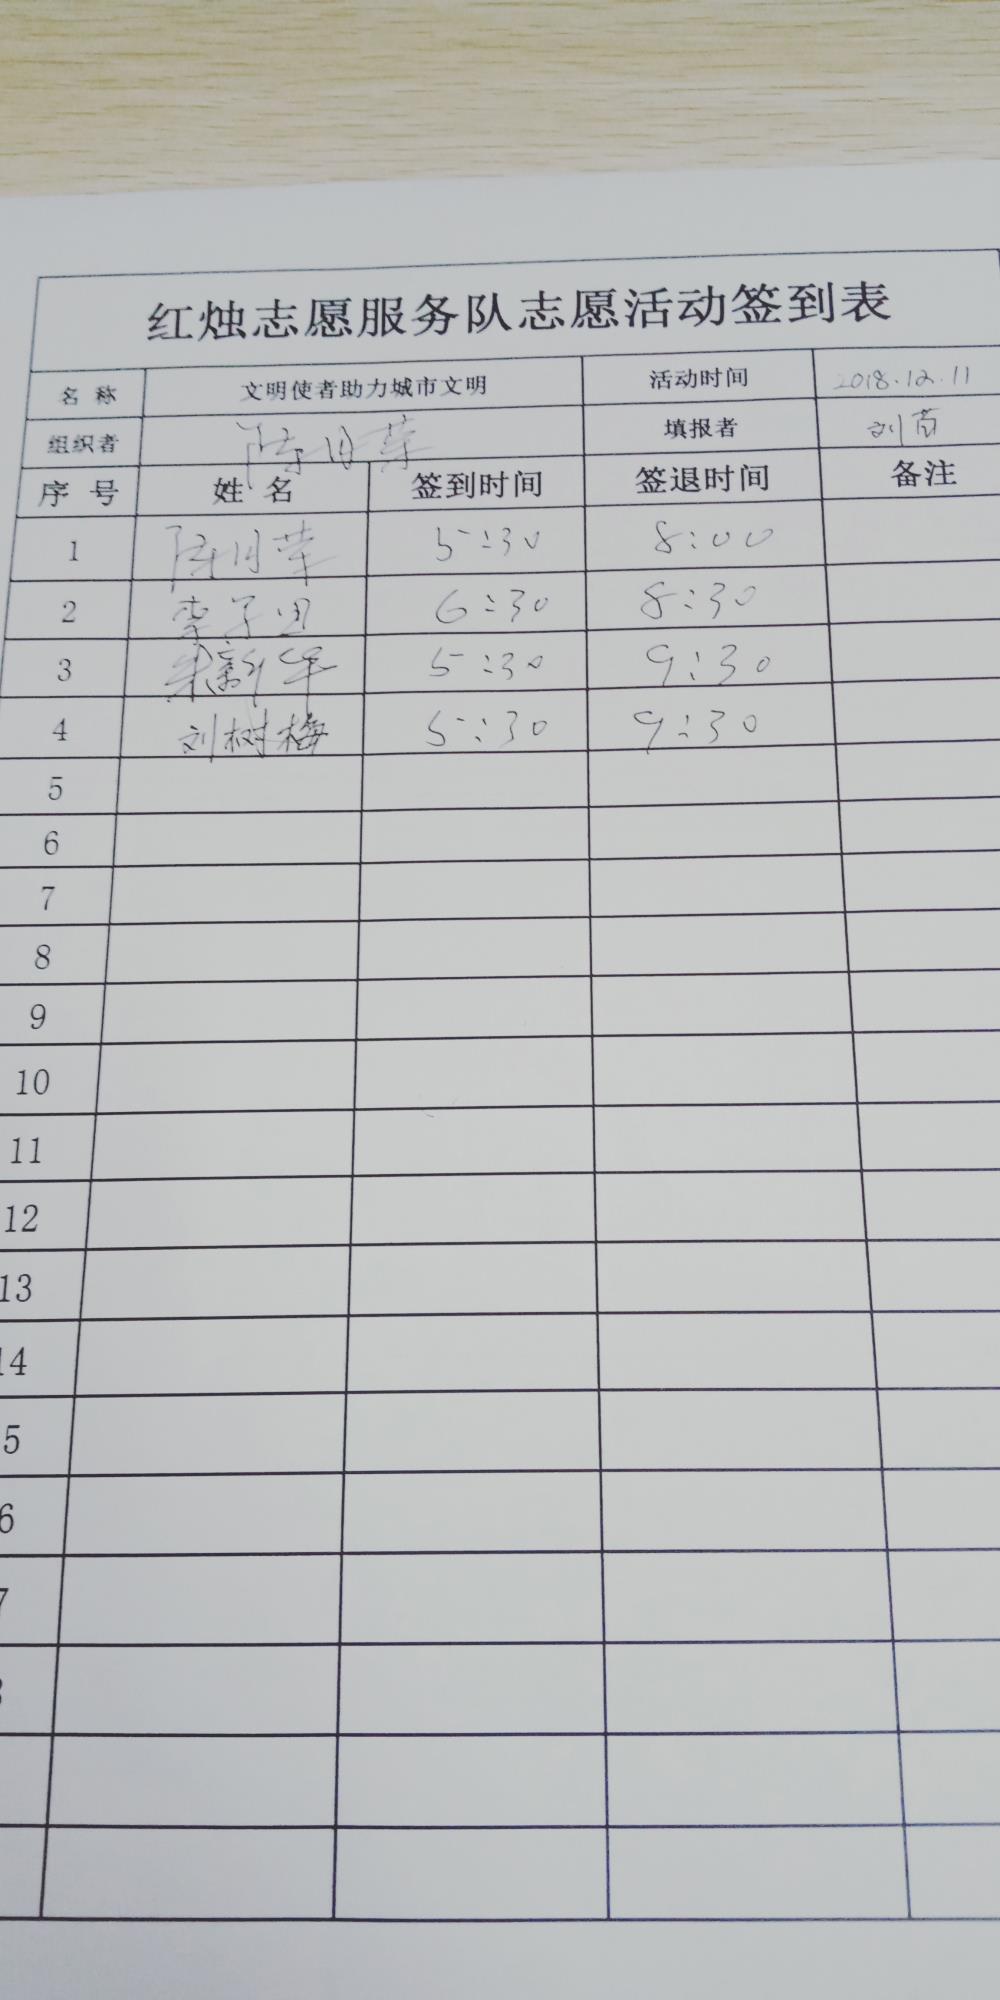 红烛志愿服务队志愿活动签到表
名 称 文明使者助力城市文明 活动时间 2018.12.11
组织者 陈月荣 填报者 刘
序 号 姓 名 签到时间 签退时间 备注
1 陈月荣 5:30 8:00
2 李子田 6:30 8:30
3 朱新华 5:30 9:30
4 刘树梅 5:30 9:30
5
6
7
8
9
10
11
12
13
14
5
6
7